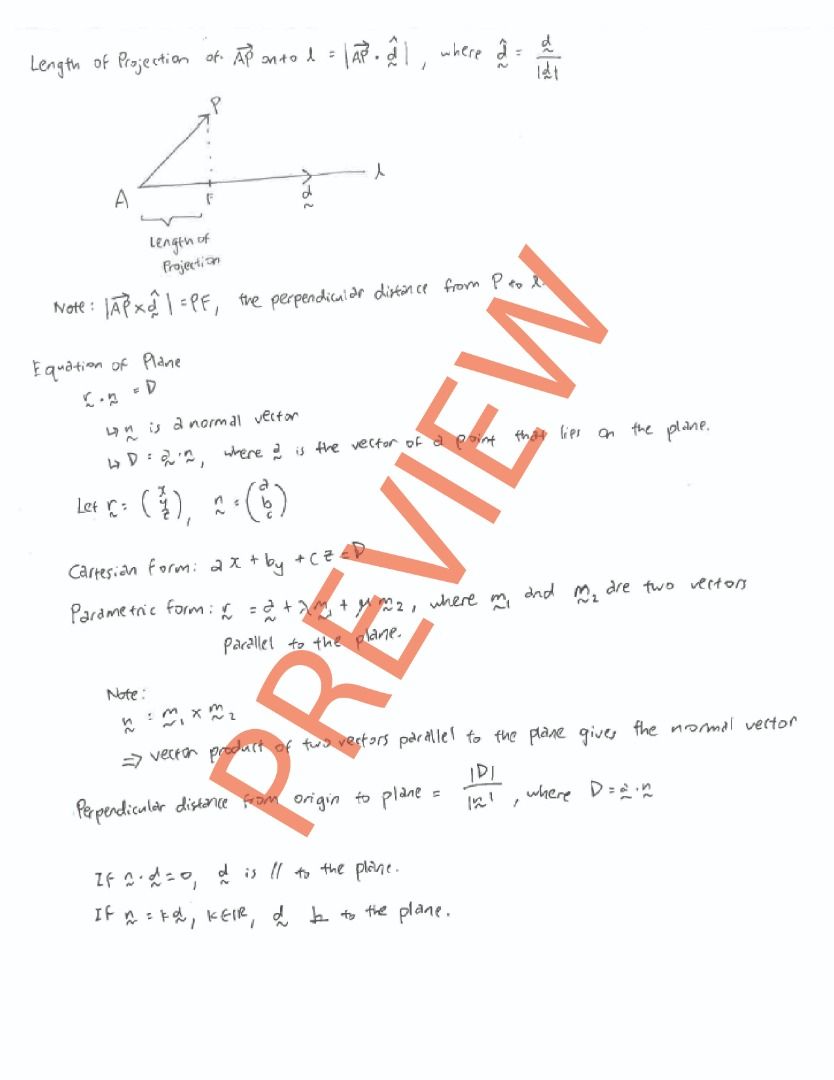 Length of Projection of AP⃗ onto l = |AP⃗ · d̰̂|, where d̰̂ = d̰/|d̰|
P
A F d̰ l
Length of
Projection
Note: |AP⃗ × d̰̂| = PF, the perpendicular distance from P to l.
Equation of Plane
r̰ · n̰ = D
↳ n̰ is a normal vector
↳ D = a̰ · n̰, where a̰ is the vector of a point that lies on the plane.
Let r̰ = (x y z), n̰ = (a b c)
Cartesian form: ax + by + cz = D
Parametric form: r̰ = a̰ + λm̰₁ + μm̰₂, where m̰₁ and m̰₂ are two vectors
parallel to the plane.
Note:
n̰ = m̰₁ × m̰₂
⇒ vector product of two vectors parallel to the plane gives the normal vector
Perpendicular distance from origin to plane = |D|/|n̰|, where D = a̰ · n̰
If n̰ · d̰ = 0, d̰ is // to the plane.
If n̰ = kd̰, k∈ℝ, d̰ ⊥ to the plane.
PREVIEW